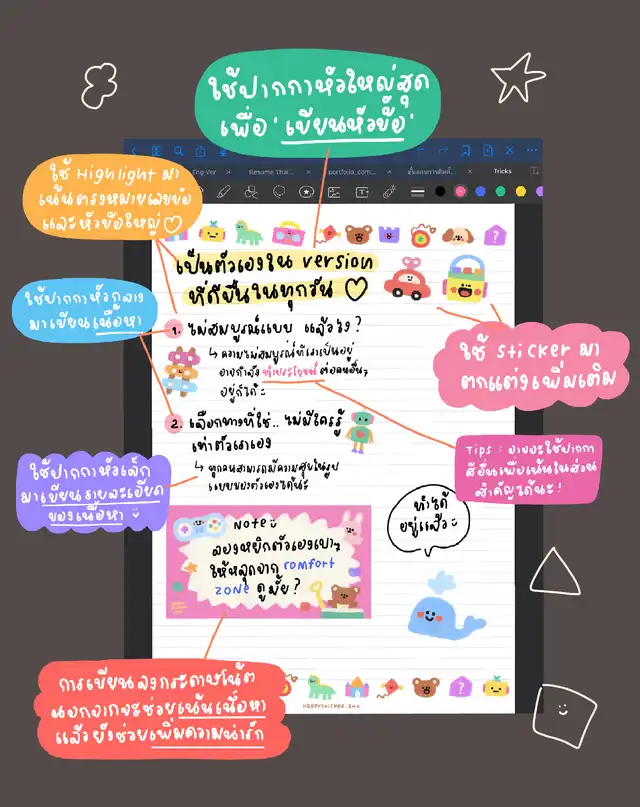 ใช้ปากกาหัวใหญ่สุด
เพื่อ 'เขียนหัวข้อ'
ใช้ Highlight มา
เน้นตรงหมายเลขข้อ
และหัวข้อใหญ่ ♡
Eng Ver
Resume Thai...
portfolio_com...
Tricks
เป็นตัวเองใน version
ที่ดีขึ้นในทุกวัน ♡
ใช้ปากกาหัวกลาง
มาเขียนเนื้อหา
1. ไม่สมบูรณ์แบบ แล้วไง?
↳ ความไม่สมบูรณ์ที่เราเป็นอยู่
อาจกำลังทำประโยชน์ต่อคนอื่นๆ
อยู่ก็ได้
ใช้ Sticker มา
ตกแต่งเพิ่มเติม
2. เลือกทางที่ใช่.. ไม่มีใครรู้
เท่าตัวเราเอง
↳ ทุกคนสามารถมีความสุขในรูป
แบบของตัวเองได้นะ
Tips : อาจจะใช้ปากกา
สีอื่นเพื่อเน้นในส่วน
สำคัญได้นะ!
ใช้ปากกาหัวเล็ก
มาเขียนรายละเอียด
ของเนื้อหา
ทำได้
อยู่แล้ว
Note
ลองหยิกตัวเองเบาๆ
ให้หลุดจาก comfort
zone ดูมั้ย?
การเขียนลงกระดาษโน้ต
นอกจากจะช่วยเน้นเนื้อหา
แล้วยังช่วยเพิ่มความน่ารัก